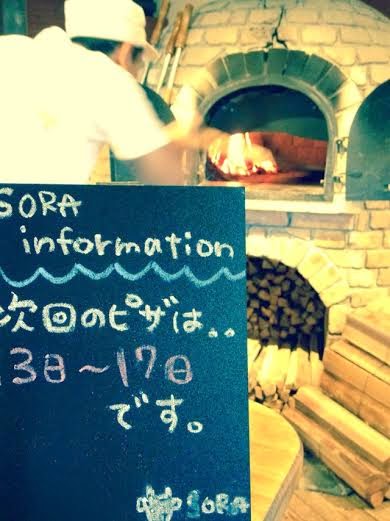 SORA
information
次回のピザは..
13日～17日
です。
SORA